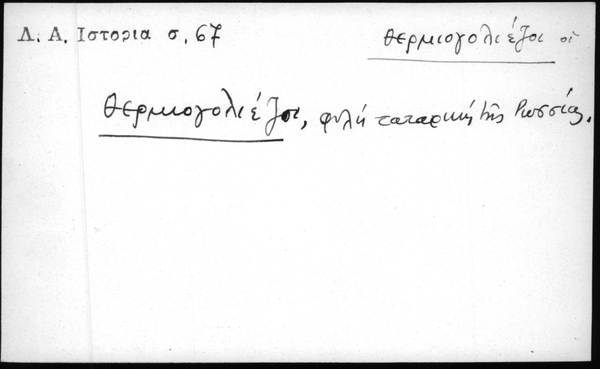 Λ. Α. Ιστορια σ. 67
θερμιογολιέζοι οἱ
θερμιογολιέζοι, φυλή ταταρική τῆς Ρωσσίας.